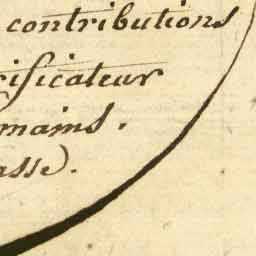 contributions
rificateur
mains.
asse.